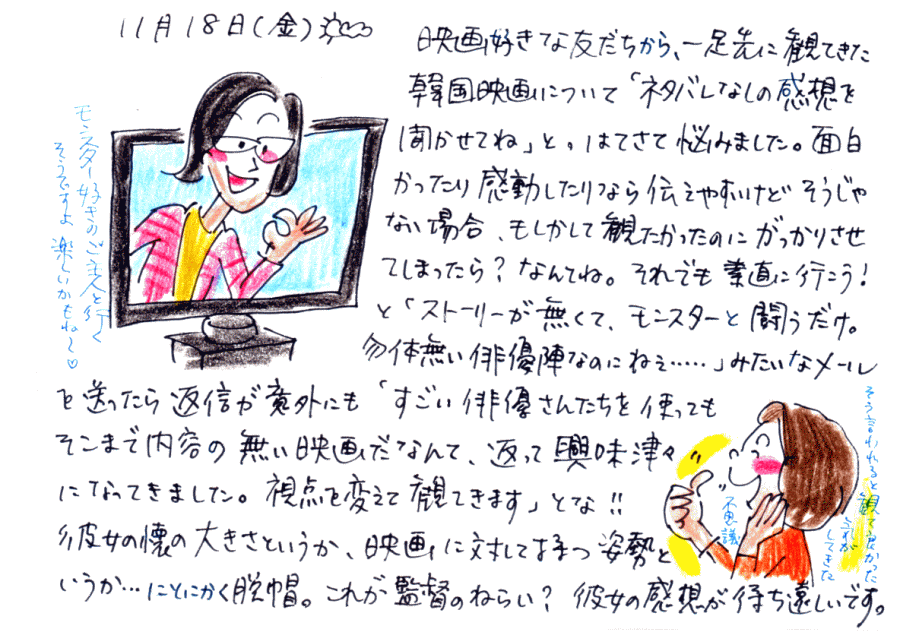 11月18日(金)
映画好きな友だちから、一足先に観てきた
韓国映画について「ネタバレなしの感想を
聞かせてね」と。はてさて悩みました。面白
かったり感動したりなら伝えやすいけどそうじゃ
ない場合、もしかして観たかったのにがっかりさせ
てしまったら?なんてね。それでも素直に行こう!
と「ストーリーが無くて、モンスターと闘うだけ。
勿体無い俳優陣なのにねぇ……」みたいなメール
を送ったら返信が意外にも「すごい俳優さんたちを使っても
そこまで内容の無い映画だなんて、返って興味津々
になってきました。視点を変えて観てきます」とな!!
彼女の懐の大きさというか、映画に対して持つ姿勢と
いうか…にとにかく脱帽。これが監督のねらい?彼女の感想が待ち遠しいです。
モンスター好きのご主人と行く
そうですよ 楽しいかもね〜♡
そう言われると観てみたかった
気がしてきた
不思議